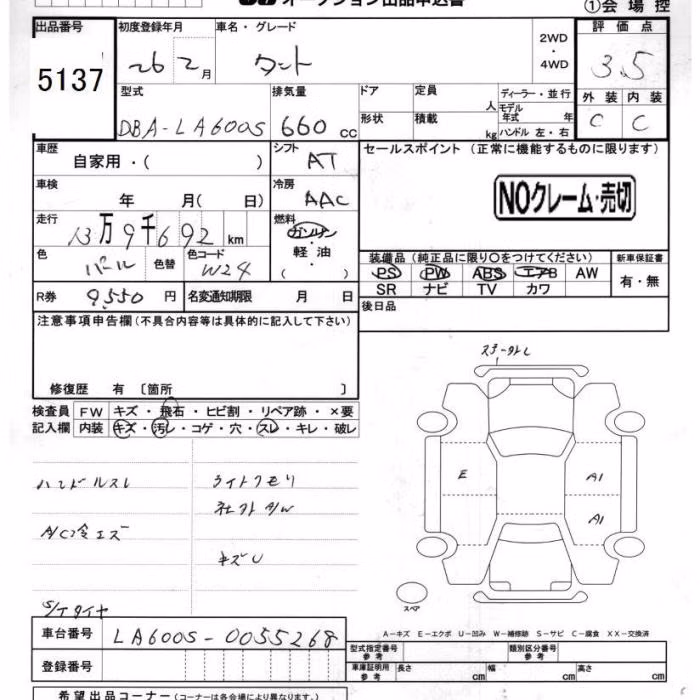 オークション出品申込書
①会場控
出品番号
5137
初度登録年月
26 2月
車名・グレード
タント
2WD
・
4WD
評価点
3.5
型式
DBA-LA600S
排気量
660 cc
ドア
定員
人
ディーラー・並行
モデル
年式 年
外装 内装
C C
形状
積載
kg
ハンドル 左・右
車歴
自家用・( )
シフト
AT
セールスポイント (正常に機能するものに限ります)
NOクレーム・売切
車検
年 月( 日)
冷房
AAC
走行
13万9千692 km
燃料
ガソリン
・
軽油
・
( )
色
パール
色替
色コード
W24
装備品 (純正品に限り○をつけてください)
PS PW ABS エアB AW
SR ナビ TV カワ
新車保証書
有・無
R券
9,550 円
名変通知期限 月 日
後日品
注意事項申告欄 (不具合内容等は具体的に記入して下さい)
修復歴 有 〔箇所 〕
検査員
記入欄
FW キズ・飛石・ヒビ割・リペア跡・×要
内装 キズ・汚レ・コゲ・穴・スレ・キレ・破レ
ハンドルスレ
ライトクモリ
社外A/W
A/C冷エズ
キズU
S/Tタイヤ
E
A1
A1
スペア
A-キズ E-エクボ U-凹み W-補修跡 S-サビ C-腐食 XX-交換済
車台番号
LA600S-0055268
登録番号
型式指定番号
参考
類別区分番号
参考
車庫証明用
参考
長さ cm
幅 cm
高さ cm
希望出品コーナー (コーナーは各会場により異なります。)